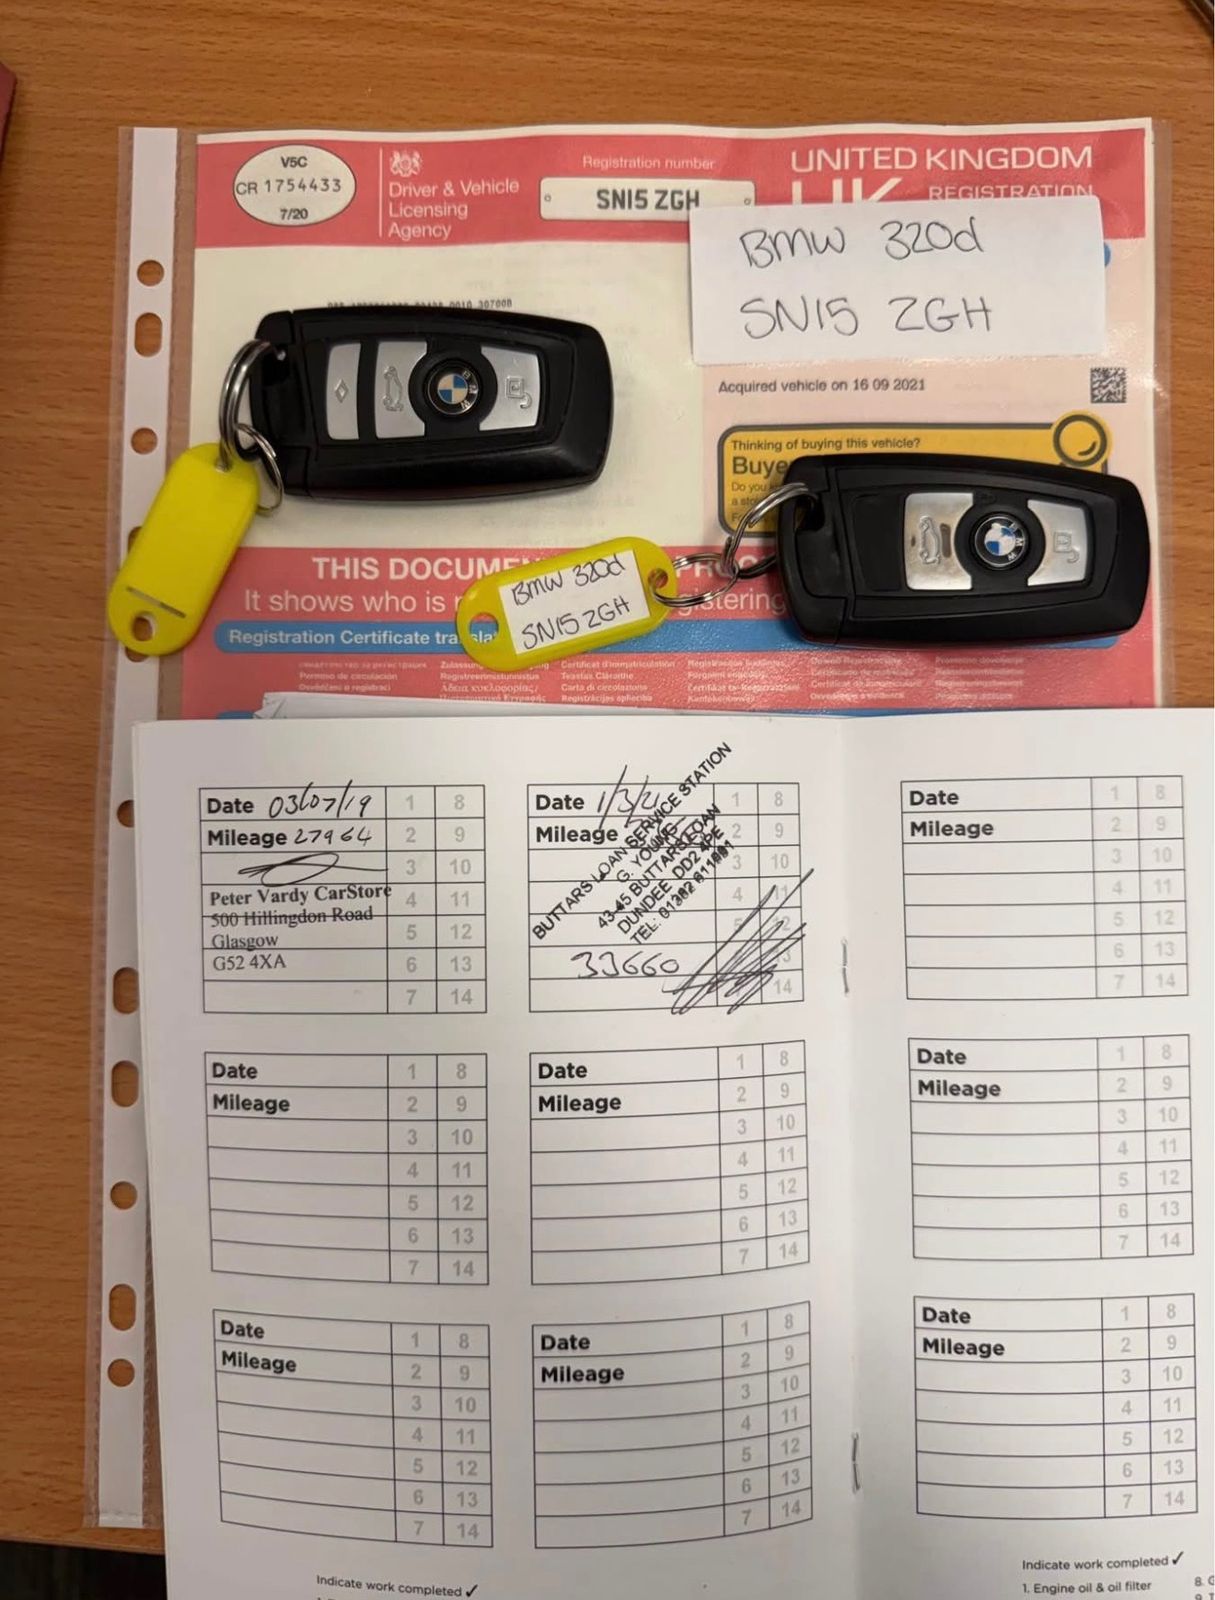 V5C
CR 1754433
7/20
Driver & Vehicle
Licensing
Agency
Registration number
SN15 ZGH
UNITED KINGDOM
UK REGISTRATION
BMW 320d
SN15 ZGH
Acquired vehicle on 16 09 2021
Thinking of buying this vehicle?
Buye
Do you
a stol
BMW
BMW
BMW 320d
SN15 ZGH
THIS DOCUME PROO
It shows who is r gistering
Registration Certificate transla
Permiso de circulación
Osvědčení o registraci
Zulassung
Registreerimistunnistus
Άδεια κυκλοφορίας/
Certificat d'immatriculation
Teastas Cláraithe
Carta di circolazione
Registrācijas apliecība
Date 03/07/19 1 8
Mileage 27964 2 9
3 10
Peter Vardy CarStore 4 11
500 Hillingdon Road
Glasgow 5 12
G52 4XA 6 13
7 14
Date 1/3/21 1 8
Mileage 2 9
3 10
4 11
5 12
13
14
BUTTARS LOAN SERVICE STATION
G. YOUNG
43-45 BUTTARS LOAN
DUNDEE DD2 4PE
TEL: 01382 611691
33660
Date 1 8
Mileage 2 9
3 10
4 11
5 12
6 13
7 14
Date 1 8
Mileage 2 9
3 10
4 11
5 12
6 13
7 14
Date 1 8
Mileage 2 9
3 10
4 11
5 12
6 13
7 14
Date 1 8
Mileage 2 9
3 10
4 11
5 12
6 13
7 14
Date 1 8
Mileage 2 9
3 10
4 11
5 12
6 13
7 14
Date 1 8
Mileage 2 9
3 10
4 11
5 12
6 13
7 14
Date 1 8
Mileage 2 9
3 10
4 11
5 12
6 13
7 14
Indicate work completed ✓
Indicate work completed ✓
1. Engine oil & oil filter
8. G